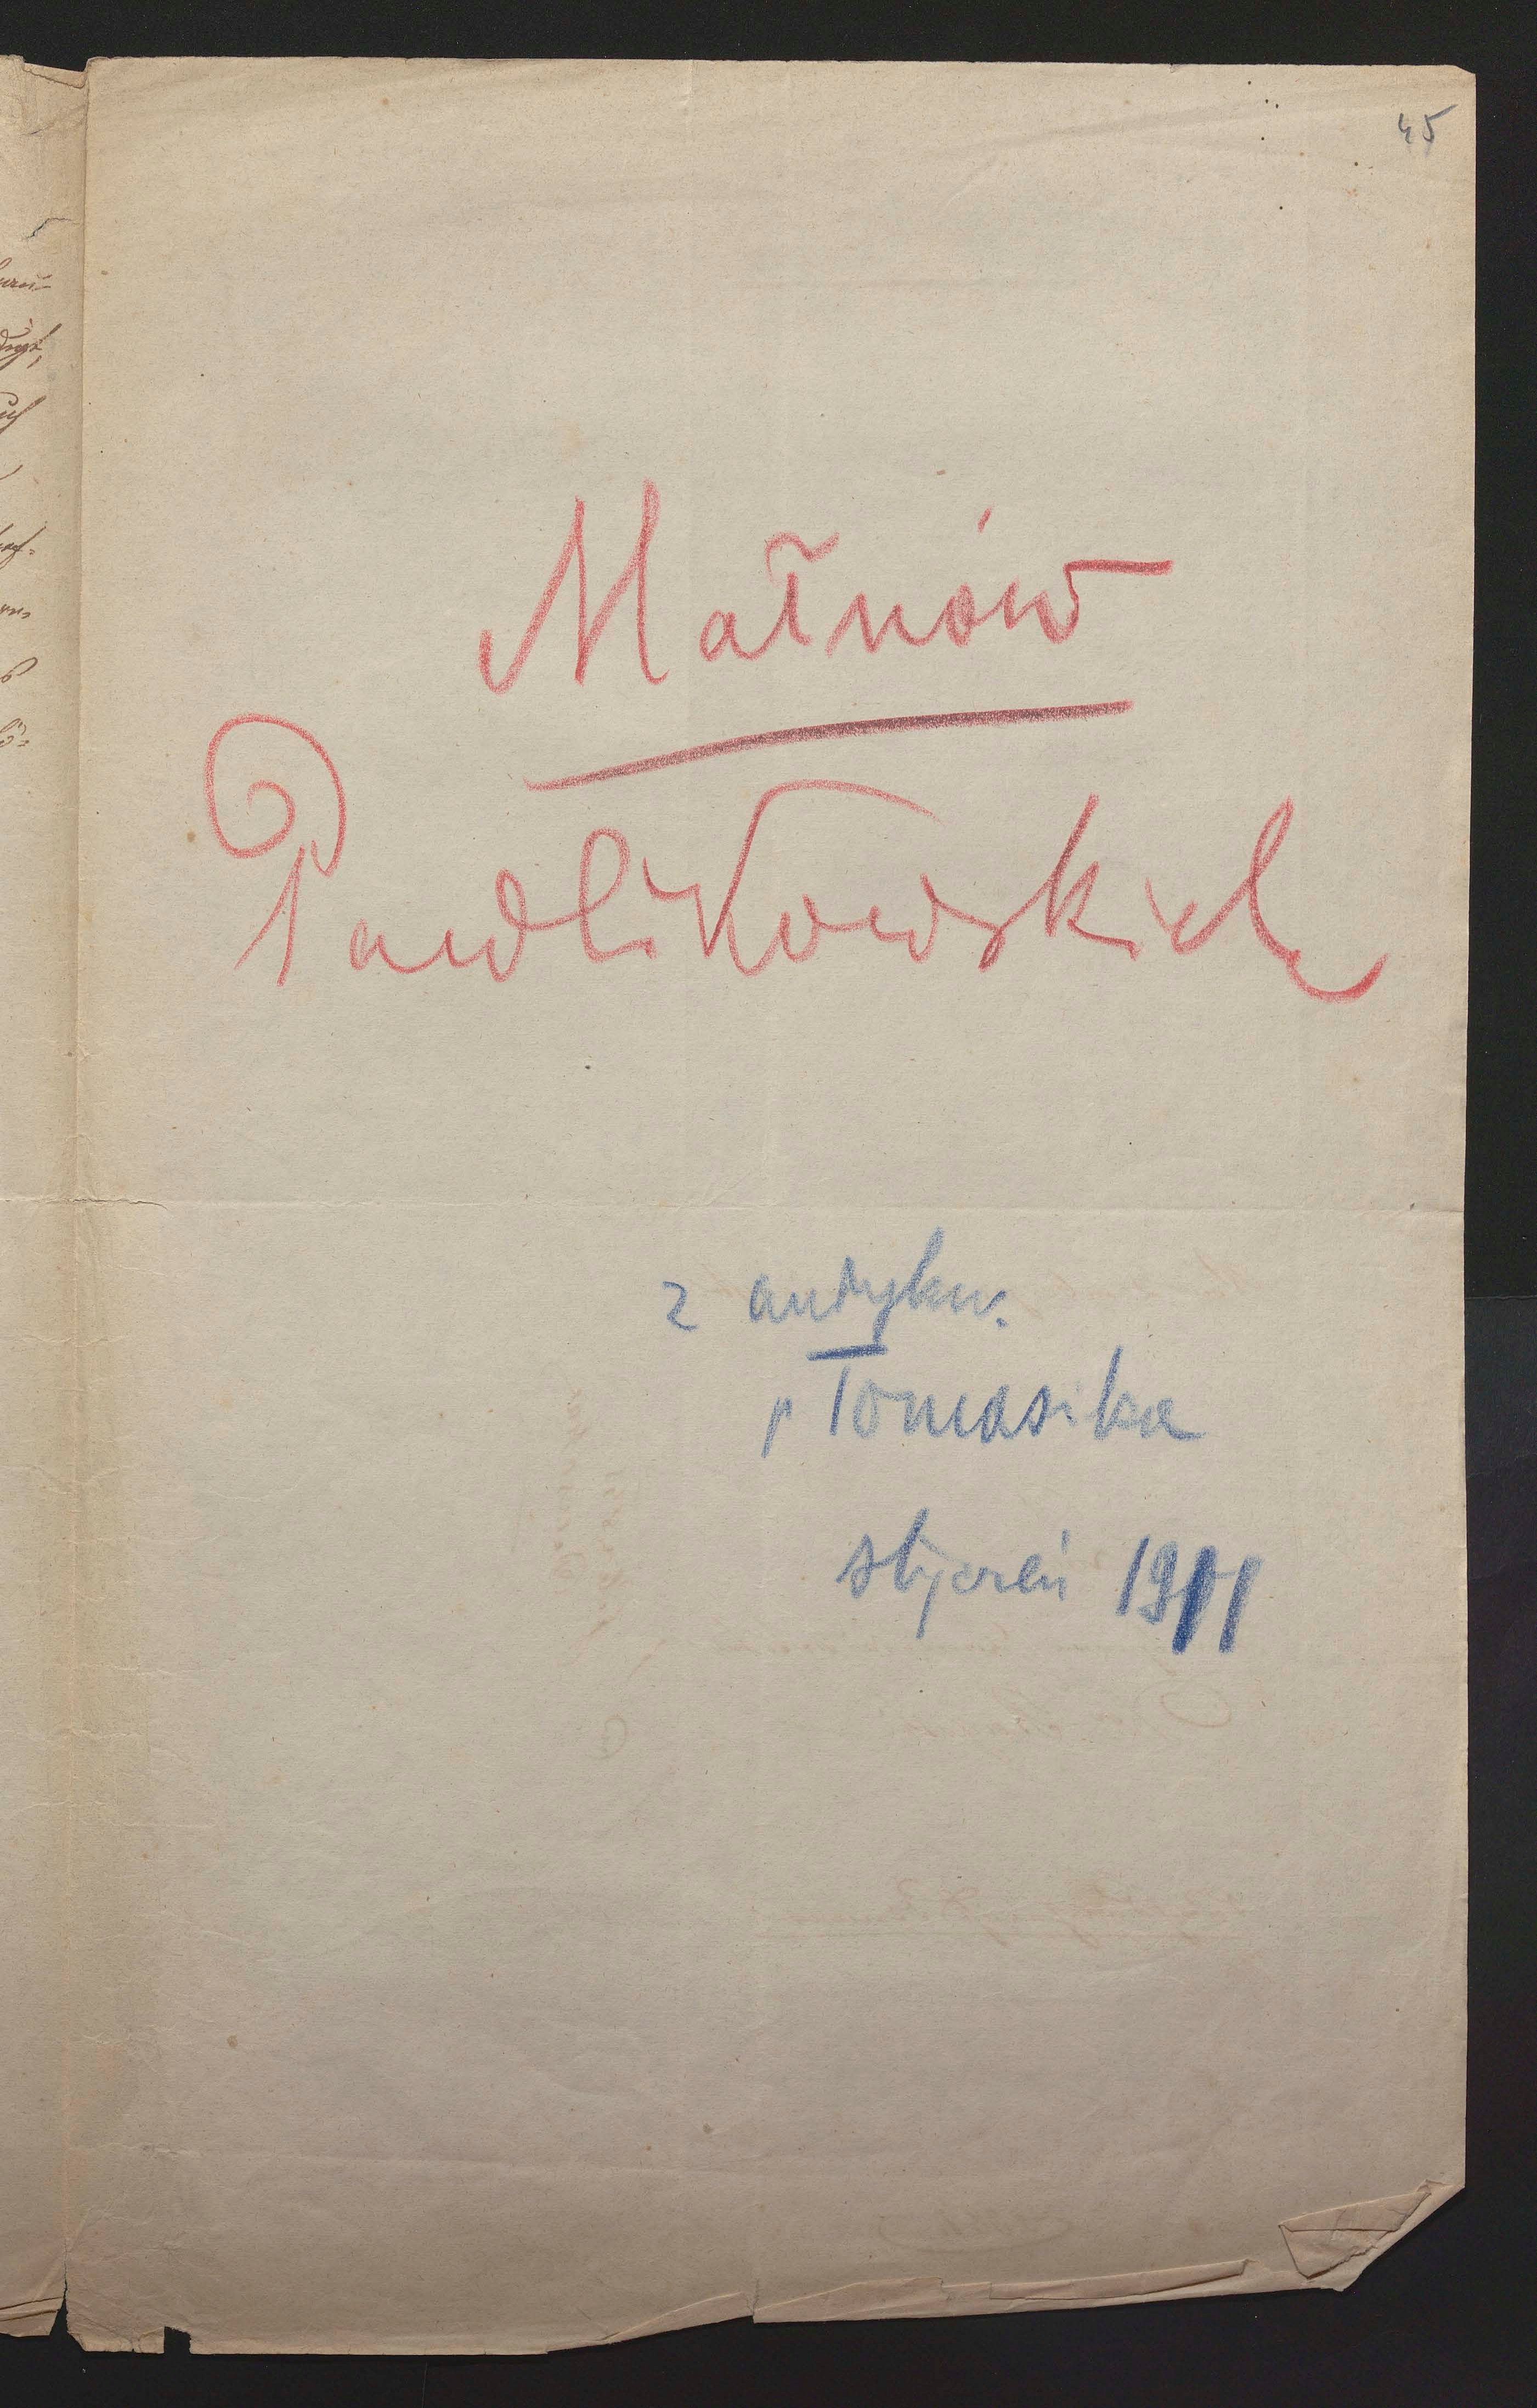 45
Małnów
Pawlikowskich
z antykw.
p Tomasika
styczeń 1911